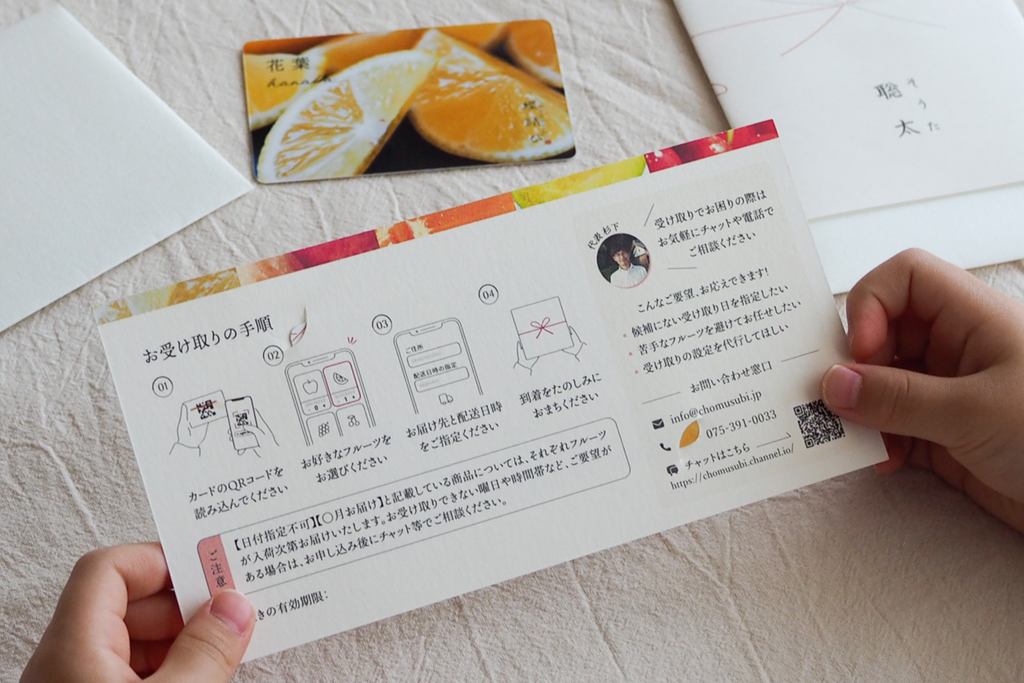 花葉
hanaeh
聡太
そうた
お受け取りの手順
01
カードのQRコードを
読み込んでください
02
0 +
1 +
お好きなフルーツを
お選びください
03
ご住所
配送日時の指定
お届け先と配送日時
をご指定ください
04
到着をたのしみに
おまちください
ご注意
【日付指定不可】【〇月お届け】と記載している商品については、それぞれフルーツ
が入荷次第お届けいたします。お受け取りできない曜日や時間帯など、ご要望が
ある場合は、お申し込み後にチャット等でご相談ください。
きの有効期限:
代表杉下
受け取りでお困りの際は
お気軽にチャットや電話で
ご相談ください
こんなご要望、お応えできます!
・候補にない受け取り日を指定したい
・苦手なフルーツを避けてお任せしたい
・受け取りの設定を代行してほしい
お問い合わせ窓口
info@chomusubi.jp
075-391-0033
チャットはこちら
https://chomusubi.channel.io/